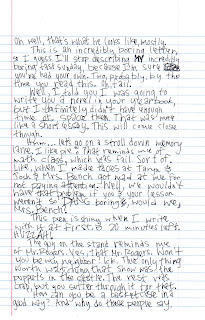 Oh well, that's what he looks like, mostly.
This is an incredibly boring letter,
so I guess I'll stop describing my incredibly
boring last Sunday, because I'm sure
you've had your own. Two, probably, by the
time you read this. Oh, fail.
Well, I told you I was going to
write you a novel in your yearbook,
but I definitely didn't have enough
time or space then. That was more
like a short essay. This will come close
though.
Hmm... let's go on a scroll down memory
lane, I like pie. That reminds me of
math class, which was fail. Sort of.
Like, when I made faces at Tanya &
Sook & Mrs. Bench got mad at me for
not paying attention. Well, we wouldn't
have that problem if you & your lesson
weren't so DANG boring, would we,
Mrs. Bench!
This pen is going when I write
with it at first. 20 minutes left.
HUZZAH!
The guy on the stand reminds me
of Mr. Rogers. Yes, that Mr. Rogers. Won't
you be my neighbor? Ick. The only thing
worth watching that show was the
puppets in the castle. The rest was
crap, but you suffer through it for that.
How can you be a basketcase in a
good way? And why do those people say,